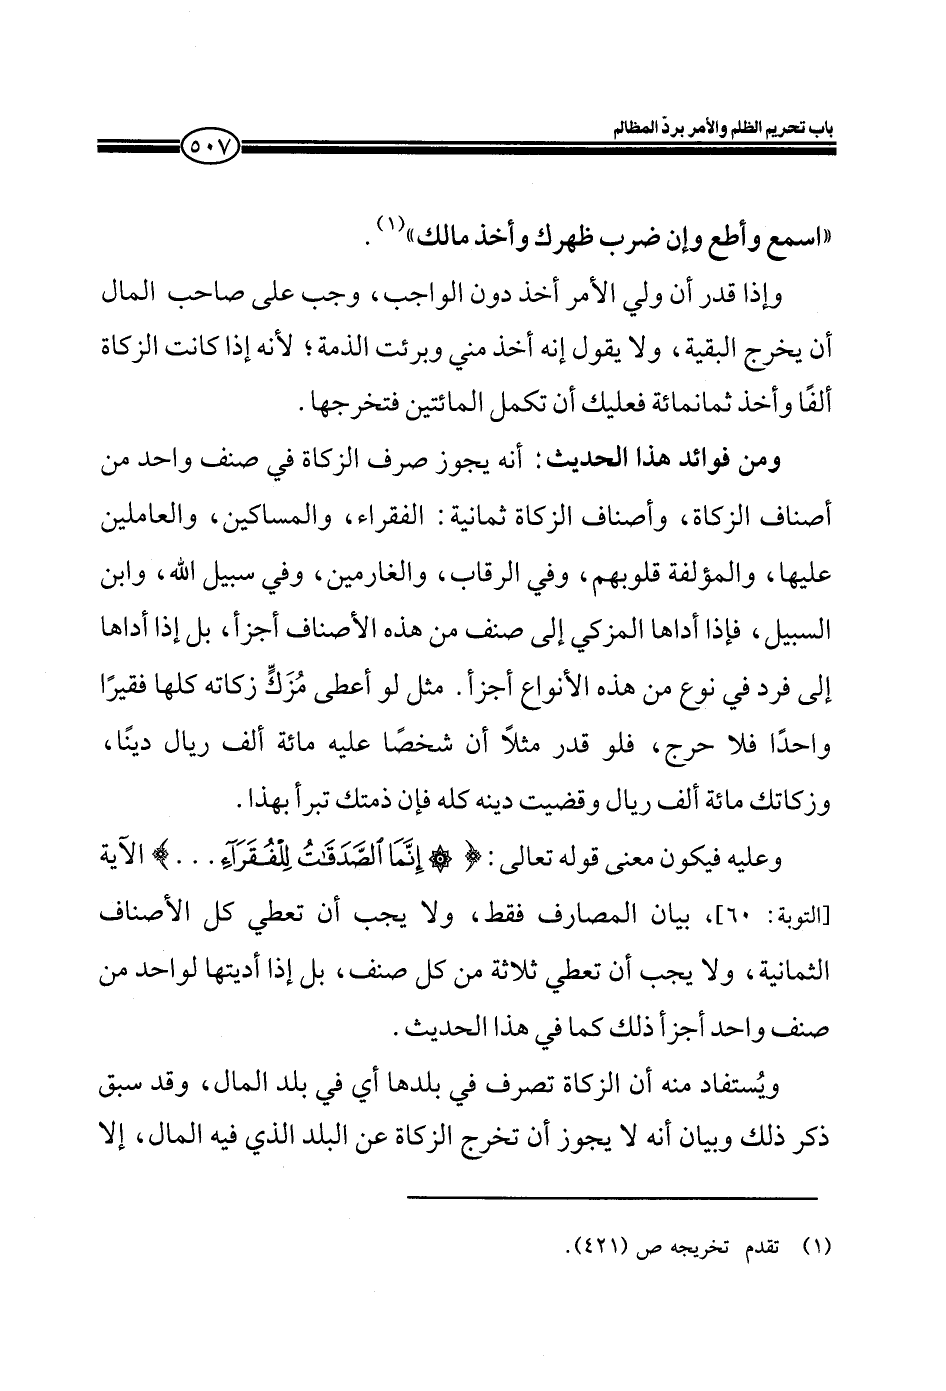 باب تحريم الظلم والأمر بردّ المظالم
٥٠٧
«اسمع وأطع وإن ضرب ظهرك وأخذ مالك»(١).
وإذا قدر أن ولي الأمر أخذ دون الواجب، وجب على صاحب المال
أن يخرج البقية، ولا يقول إنه أخذ مني وبرئت الذمة؛ لأنه إذا كانت الزكاة
ألفًا وأخذ ثمانمائة فعليك أن تكمل المائتين فتخرجها.
ومن فوائد هذا الحديث: أنه يجوز صرف الزكاة في صنف واحد من
أصناف الزكاة، وأصناف الزكاة ثمانية: الفقراء، والمساكين، والعاملين
عليها، والمؤلفة قلوبهم، وفي الرقاب، والغارمين، وفي سبيل الله، وابن
السبيل، فإذا أداها المزكي إلى صنف من هذه الأصناف أجزأ، بل إذا أداها
إلى فرد في نوع من هذه الأنواع أجزأ. مثل لو أعطى مُزَكٍّ زكاته كلها فقيرًا
واحدًا فلا حرج، فلو قدر مثلاً أن شخصًا عليه مائة ألف ريال دينًا،
وزكاتك مائة ألف ريال وقضيت دينه كله فإن ذمتك تبرأ بهذا.
وعليه فيكون معنى قوله تعالى: ﴿ ۞ إِنَّمَا ٱلصَّدَقَٰتُ لِلْفُقَرَآءِ . . . ﴾ الآية
[التوبة: ٦٠]، بيان المصارف فقط، ولا يجب أن تعطي كل الأصناف
الثمانية، ولا يجب أن تعطي ثلاثة من كل صنف، بل إذا أديتها لواحد من
صنف واحد أجزأ ذلك كما في هذا الحديث.
ويُستفاد منه أن الزكاة تصرف في بلدها أي في بلد المال، وقد سبق
ذكر ذلك وبيان أنه لا يجوز أن تخرج الزكاة عن البلد الذي فيه المال، إلا
(١) تقدم تخريجه ص (٤٢١).